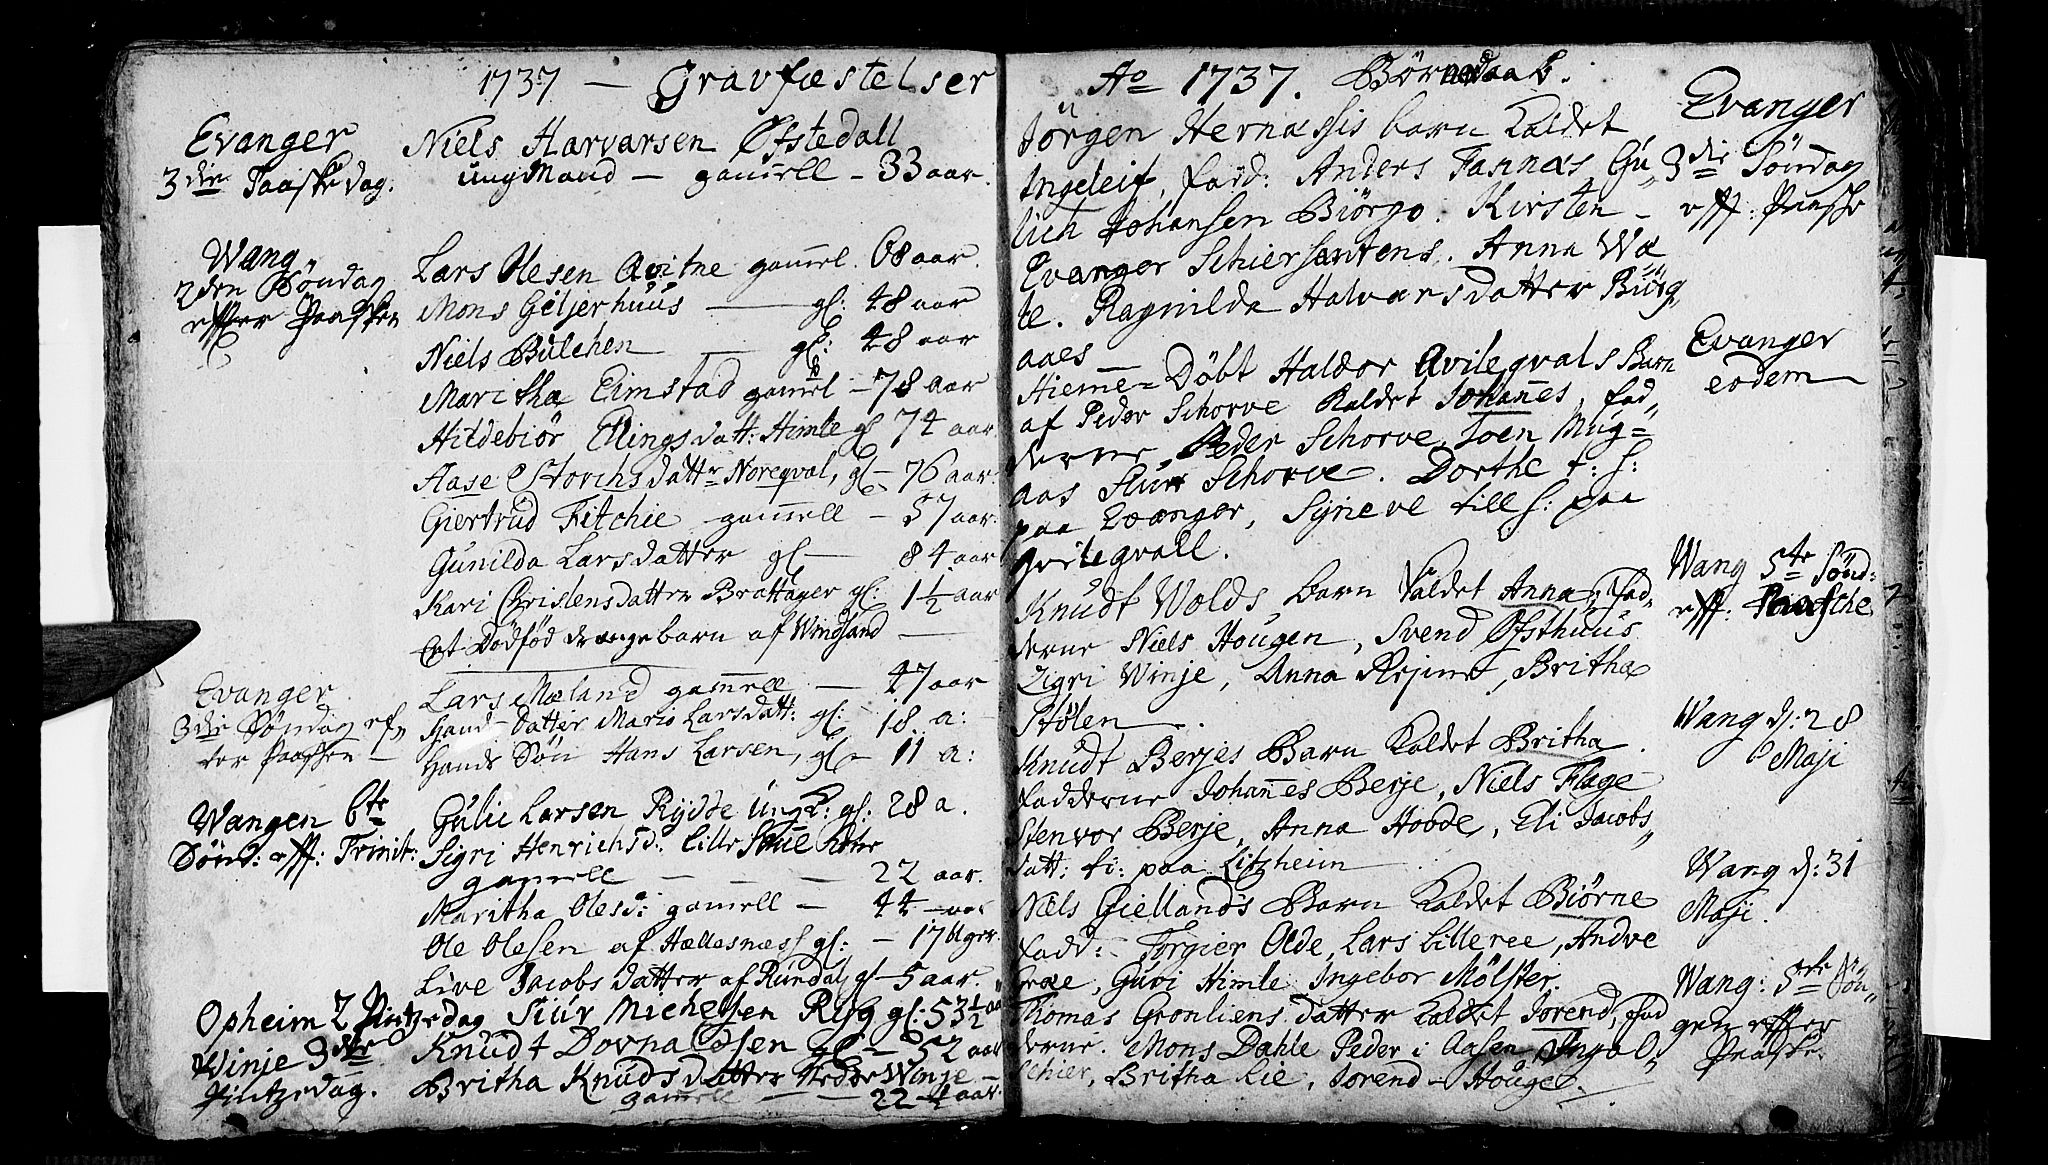 1737 — Gravfæstelser
Evanger Niels Harvarsen Øfstedall
3die Paaskedag. ung Mand — gamell — 33 aar.
Wang
2den Söndag
effter Paasken
Lars Olesen Qvitne gamel 68 aar.
Mons Giljerhuus — gl: 48 aar
Niels Bulchen — gl: 48 aar
Maritha Eimstad gamel — 78 aar
Hildebiör Elingsdatt: Himle gl 74 aar.
Aase Storchsdattr Noreqval, gl — 76 aar.
Giertrud Fitchie gamell — 57 aar:
Gunilda Larsdatter gl — 84 aar
Kari Christensdatter Brattager gl: 1½ aar
Et Dödföd drængebarn af Windsand —
Evanger
3die Söndag ef„
ter Paaschen —
Lars Mæland gamell — 47 aar
Hands Datter Mario Larsdatt: gl: — 18 a:
Hands Sön Hans Larsen, gl — 11 a:
Wangen 6te
Sönd: eff: Trinit:
Gulic Larsen Rydde ungk: gl: 28 a.
Sigri Henrichsd: Lille
gamell — — — 22 aar.
Maritha Olesd: gamell — 44 — aar
Ole Olesen af Hællesnæss gl: — 17 Uger.
Live Jacobsdatter af Rundal gl — 5 aar.
Opheim 2 Pintzedag Siur Michelsen Rigg gl: 53½ aar
Winje 3die
Pintzedag.
Knudt Dovna Olsen gl — 52 aar
Britha Knudsdatter Nedre Winje —
gamell — — 22 ½ aar.
Ao 1737. Börnedaab.
Jörgen Hernæssis barn Kaldet
Ingeleif, fadd: Anders Fannæs, Gu„
lich Johansen Biörgo. Kirsten —
Evanger Schiersantens. Anna Wæ
te. Ragnilda Halvarsdatter Bürg„
aaes —
Evanger
3die Söndag
eff: Paasche
Hieme-Döbt Haldor Qvileqvals Barn
af Peder Schorve Kaldet Johannes, fad„
derne, Peder Schorve, Joen Mug=
aas Siur Schorve. Dorthe t: h:
paa Evanger, Syneve till h: paa
Qvileqvall.
Evanger
eodem
Knudt Wolds barn Kaldet Anna, Fad„
derne Niels Hougen, Svend Øfsthuus
Zigri Winje, Anna Rejme, Britha
Stölen —
Wang 5te Sönd:
eff: Paasche
Knudt Berjes Barn Kaldet Britha
Fadderne Johannes Berje, Niels Flage
Stenvor Berje, Anna Hovde, Eli Jacobs„
datt: ti: paa Litzheim —
Wang d: 28
Maji
Niels Giellands Barn Kaldet Biörne
Fadd: Torgier Olde, Lars Lilleree, Andve
Græe, Guri Himle, Ingebor Mölster.
Wang d: 31
Maji.
Thomas Gronliens datter Kaldet Jorend, fad
derne. Mons Dahle Peder i Aasen, Inga O„
schier, Britha Lie, Jorend Houge.
Wang: 5te Sön„
gen effter
Paaske.